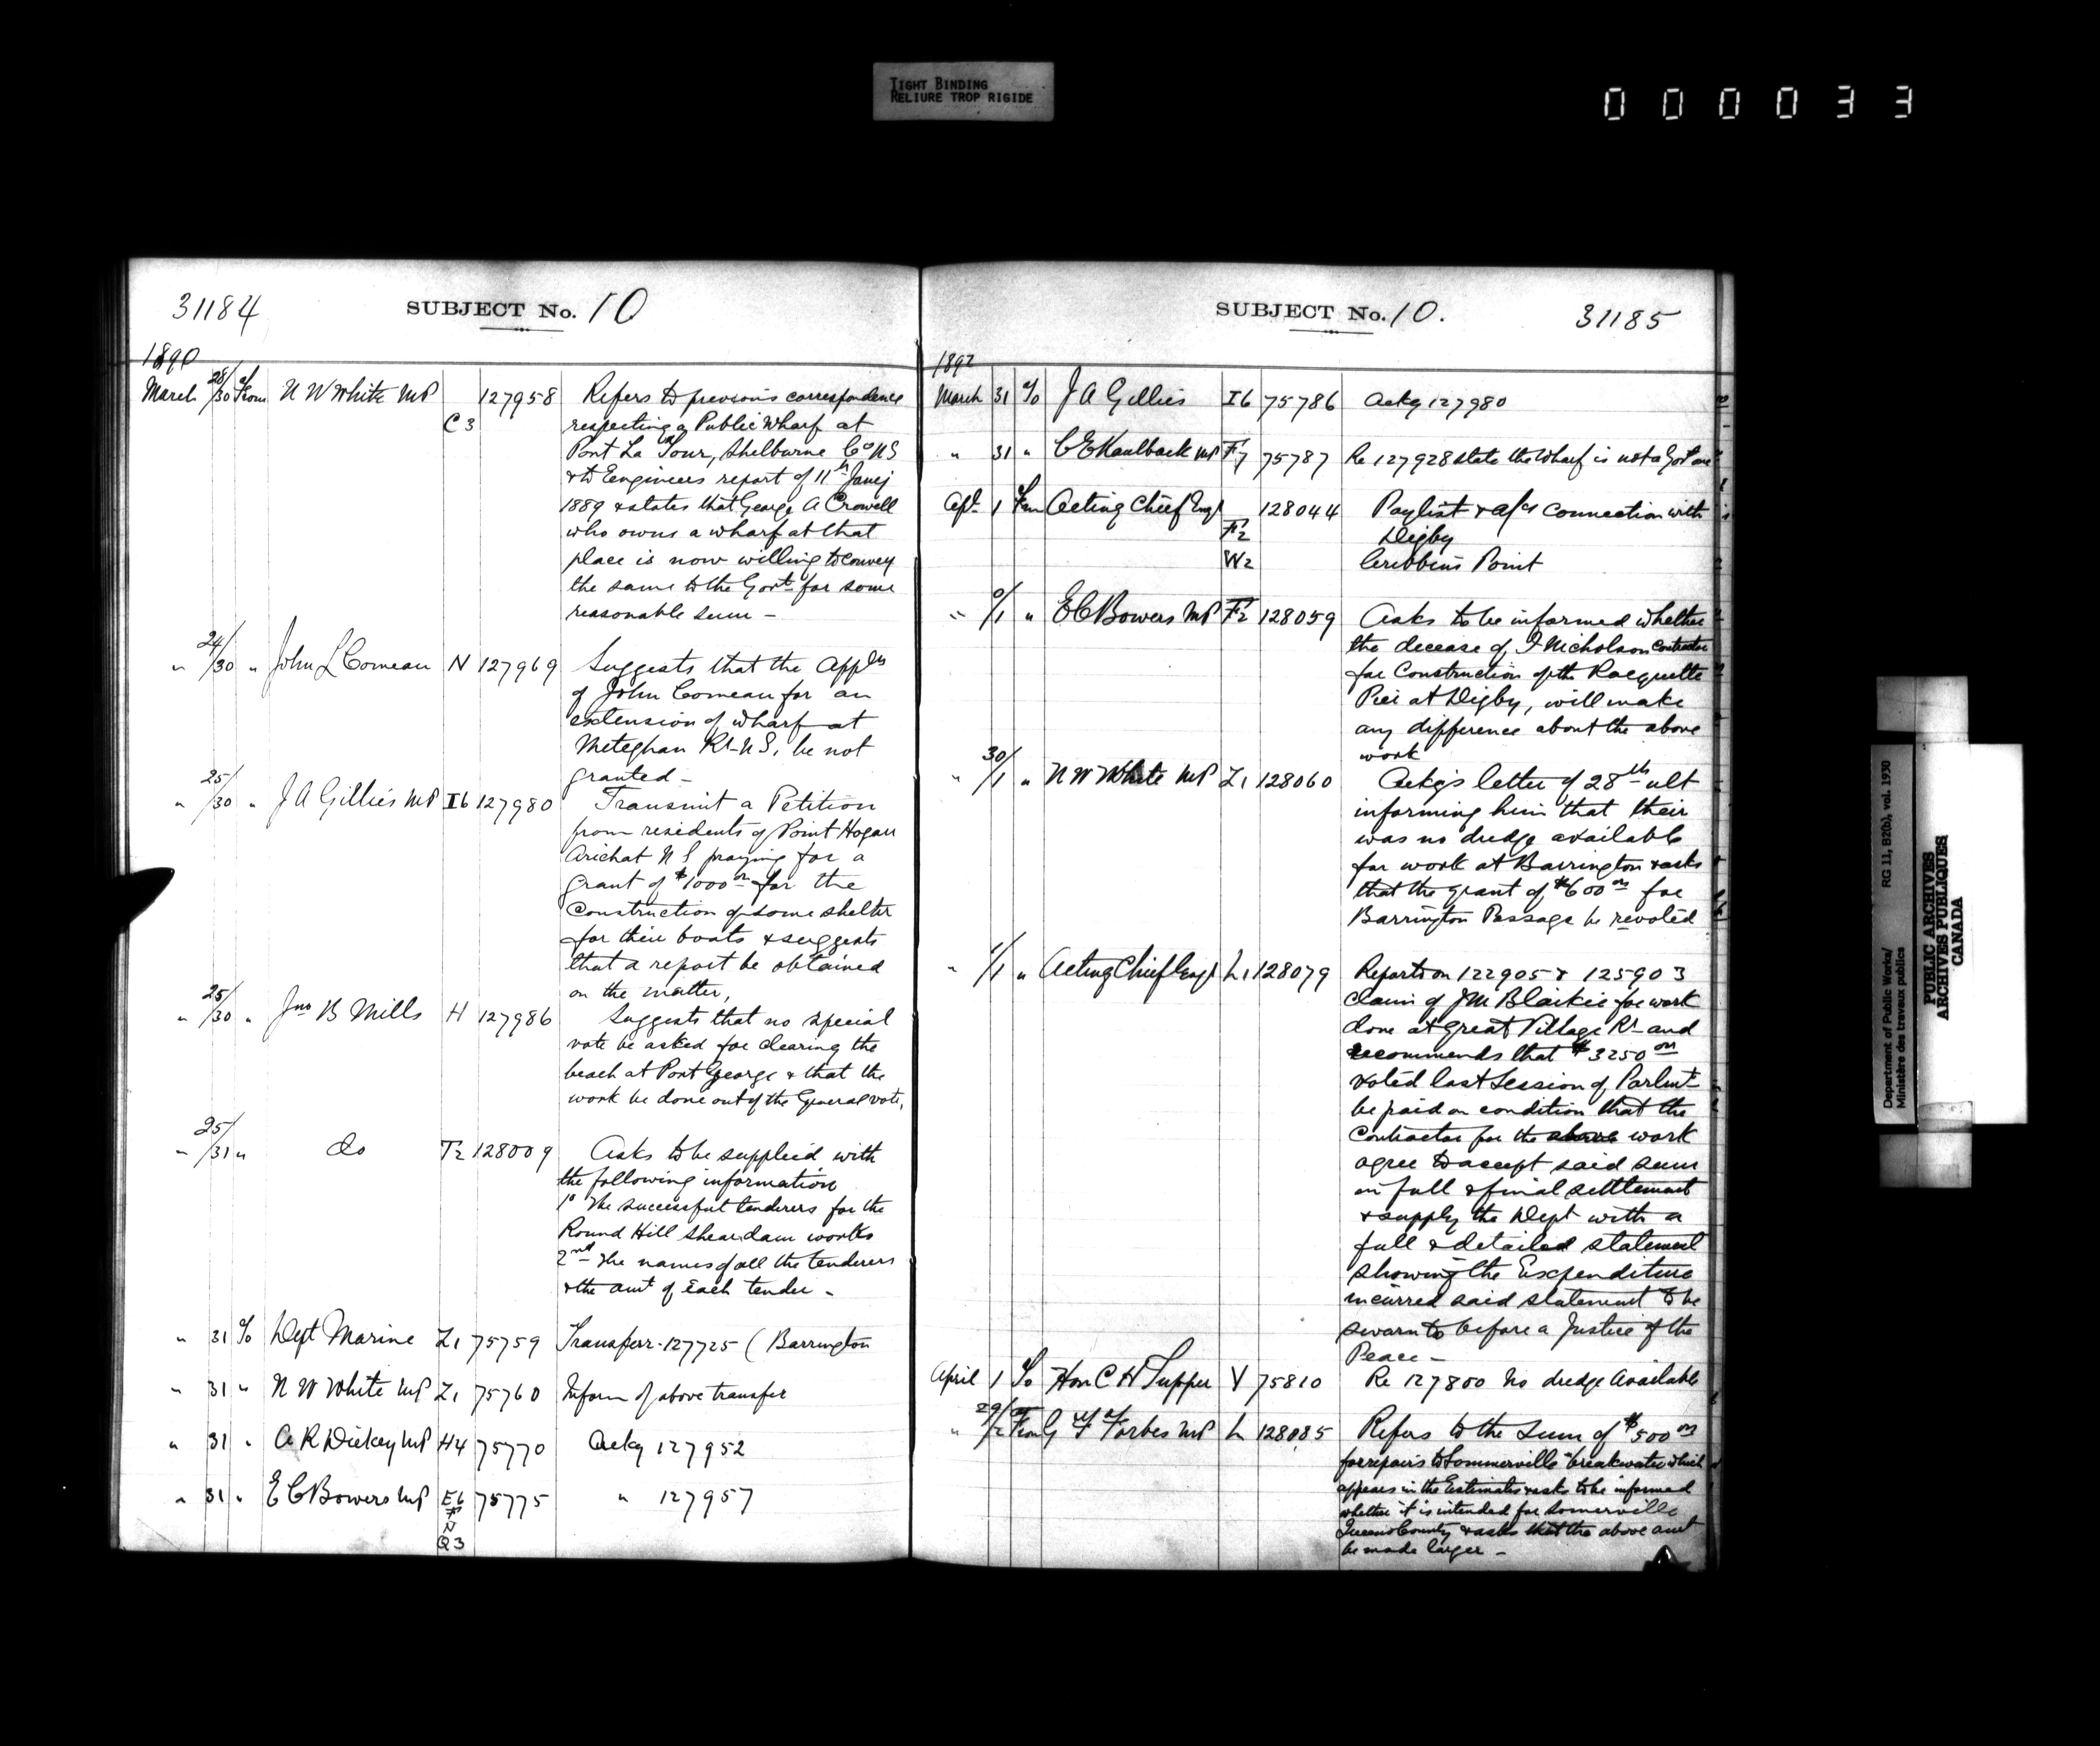 TIGHT BINDING
RELIURE TROP RIGIDE
000033
31184
SUBJECT No. 10
1890
March 28/30 From N W White MP C3 127958 Refers to previous correspondence
respecting a Public Wharf at
Port La Tour, Shelburne Co NS
& to Engineers report of 11th Jany
1889 & states that George A Crowell
who owns a wharf at that
place is now willing to convey
the same to the Govt for some
reasonable sum -
" 24/30 " John L Comeau N 127969 Suggests that the Appln
of John Comeau for an
extension of wharf at
Meteghan Rr N S, be not
granted -
" 25/30 " J A Gillies MP I6 127980 Transmit a Petition
from residents of Point Hogan
Arichat N S praying for a
grant of $1000 00 for the
Construction of some shelter
for their boats & suggests
that a report be obtained
on the matter,
" 25/30 " Jno B Mills H 127986 Suggests that no special
vote be asked for clearing the
beach at Port George & that the
work be done out of the General vote,
" 25/31 " do T2 128009 Asks to be supplied with
the following information
1o The successful tenderers for the
Round Hill shear dam works
2nd The names of all the tenderers
& the amt of each tender -
" 31 To Dept Marine Z1 75759 Transferr. 127725 ( Barrington
" 31 " N W White MP Z1 75760 Inform of above transfer
" 31 " A R Dickey MP H4 75770 Ackg 127952
" 31 " E C Bowers MP E6 75775 " 127957
F
N
Q3
SUBJECT No. 10.
31185
1892
March 31 To J A Gillies I6 75786 Ackg 127980
" 31 " C E Kaulback MP F7 75787 Re 127928 state the Wharf is not a Govt one
Apl 1 From Acting Chief Engr 128044 Paylist & a/cs connection with
F2 Digby
W2 Cribbins Point
" 0/1 " E C Bowers MP F2 128059 Asks to be informed whether
the decease of J Nicholson Contractor
for Construction of the Racquette
Pier at Digby, will make
any difference about the above
work
" 30/1 " N W White MP Z1 128060 Ackgs letter of 28th ult
informing him that their
was no dredge available
for work at Barrington & asks
that the grant of $600 00 for
Barrington Passage be revoted
" 1/1 " Acting Chief Engr L1 128079 Reports on 122905 & 125903
claim of J M Blaikie for work
done at Great Village Rr and
recommends that $3250 00
voted last Session of Parlmt
be paid on condition that the
Contractor for the above work
agree to accept said sum
in full & final settlement
& supply the Dept with a
full & detailed statement
showing the Expenditure
incurred said statement to be
sworn to before a Justice of the
Peace -
April 1 To Hon C H Tupper V 75810 Re 127800 No dredge Available
" 29/2 From G F Forbes MP L 128085 Refers to the Sum of $500 00
for repairs to Sommerville breakwater which
appears in the Estimates & asks to be informed
whether it is intended for Somerville
Queens County & asks that the above amt
be made larger -
Department of Public Works/ RG 11, B2(b), vol. 1930
Ministère des travaux publics
PUBLIC ARCHIVES
ARCHIVES PUBLIQUES
CANADA